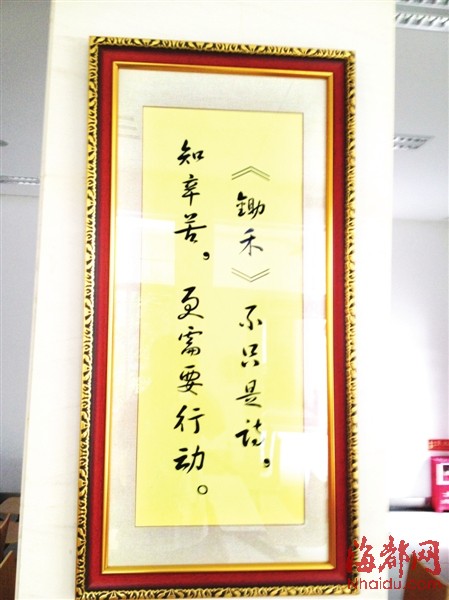 《鋤禾》不只是诗，
知辛苦，更需要行动。
海都网
nhaidu.com